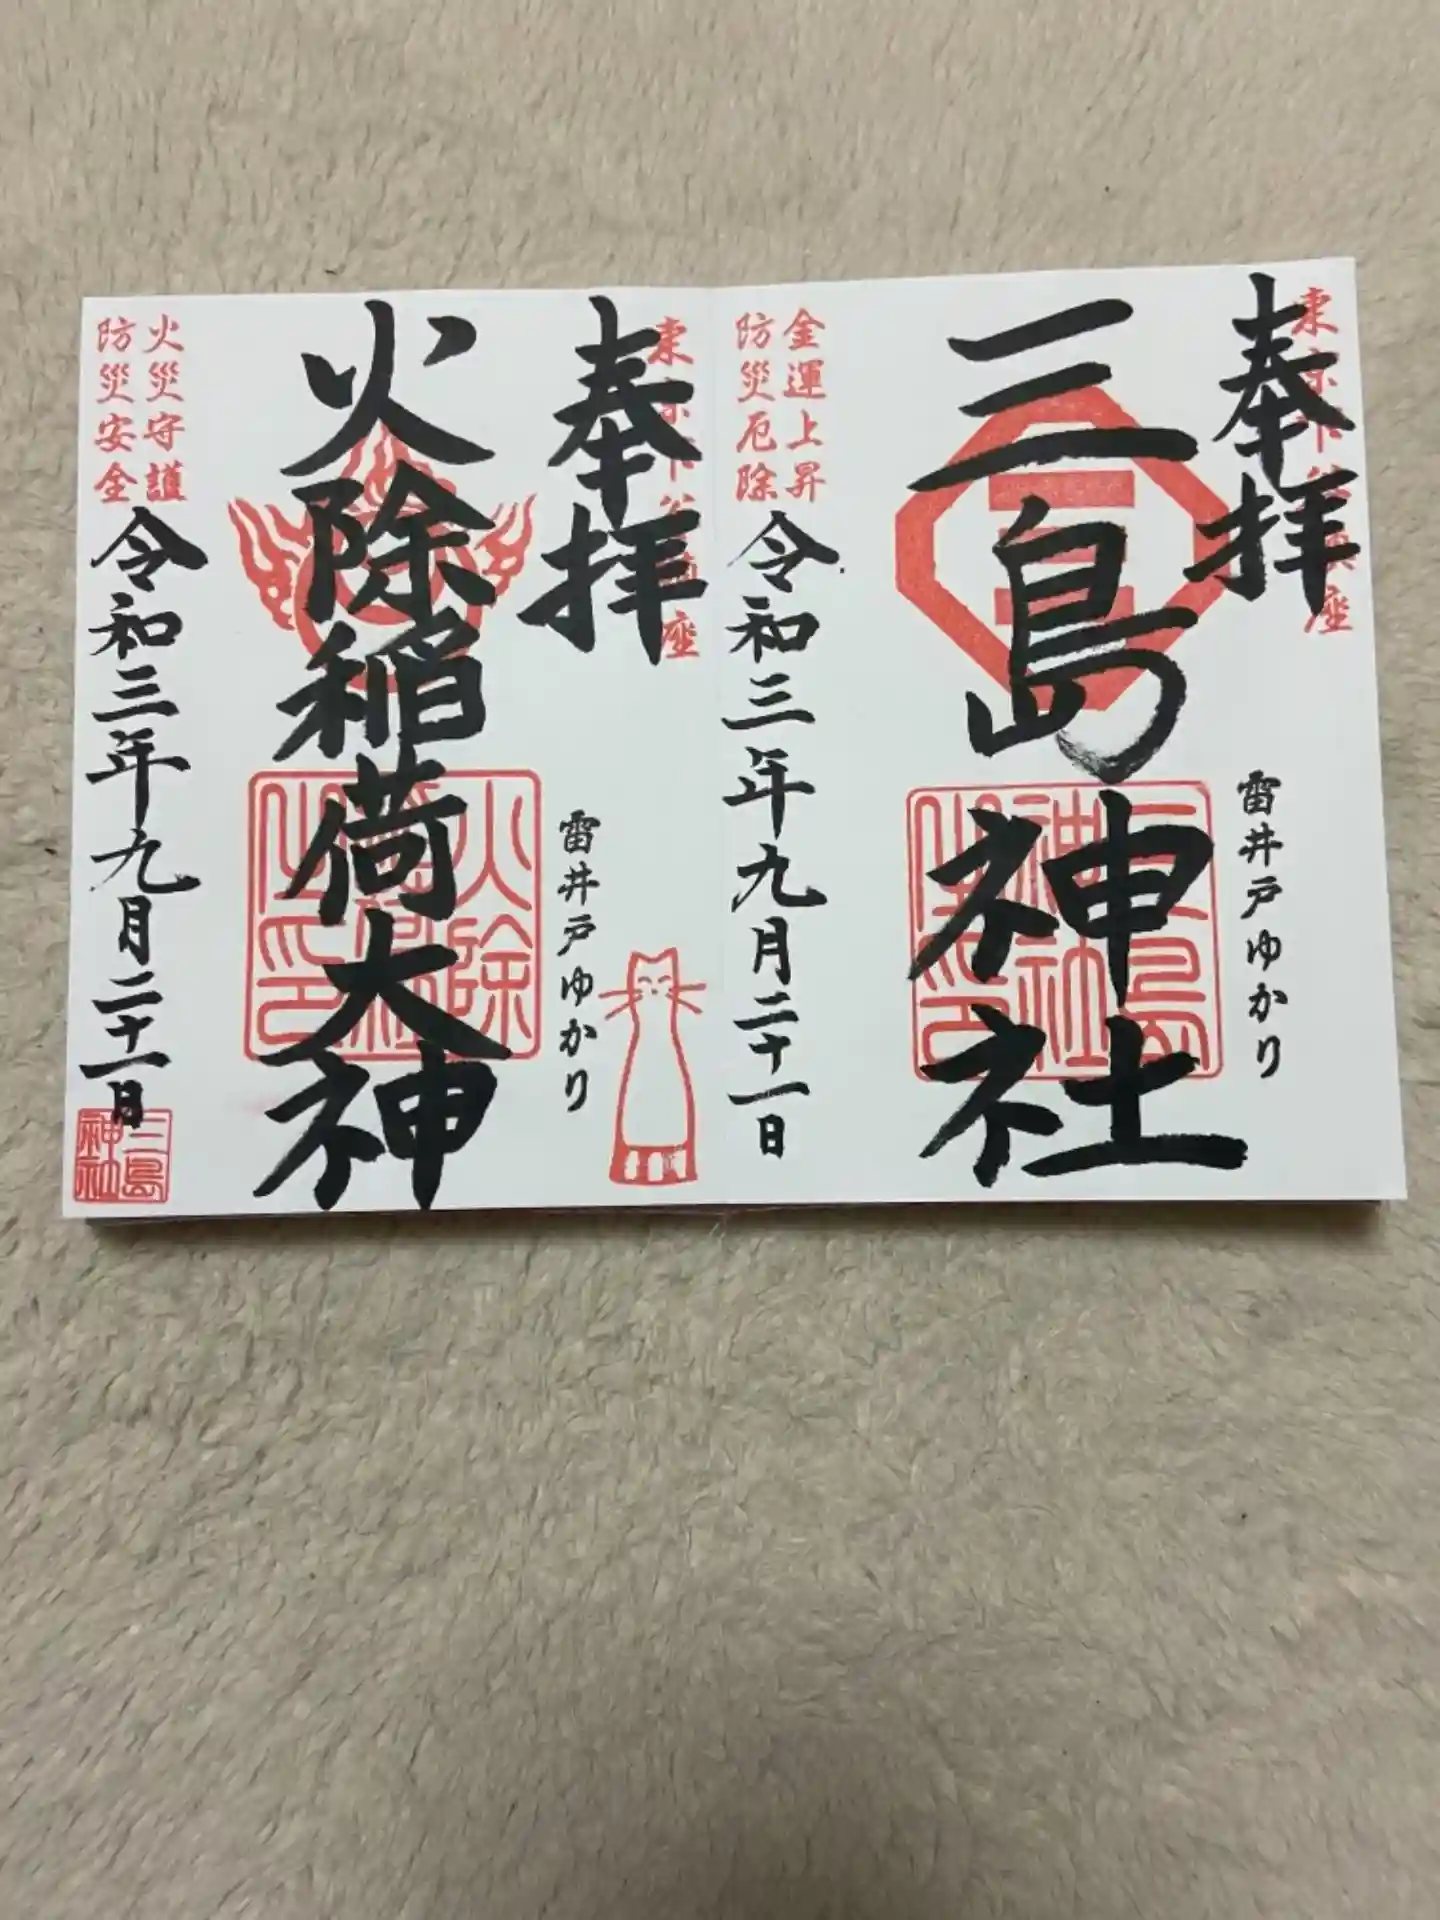 東京下谷鎮座
奉拝
雷井戸ゆかり
三島神社
三島神社之印
金運上昇
防災厄除
令和三年九月二十一日
奉拝
雷井戸ゆかり
火除稲荷大神
火災守護
防災安全
令和三年九月二十一日
三島神社